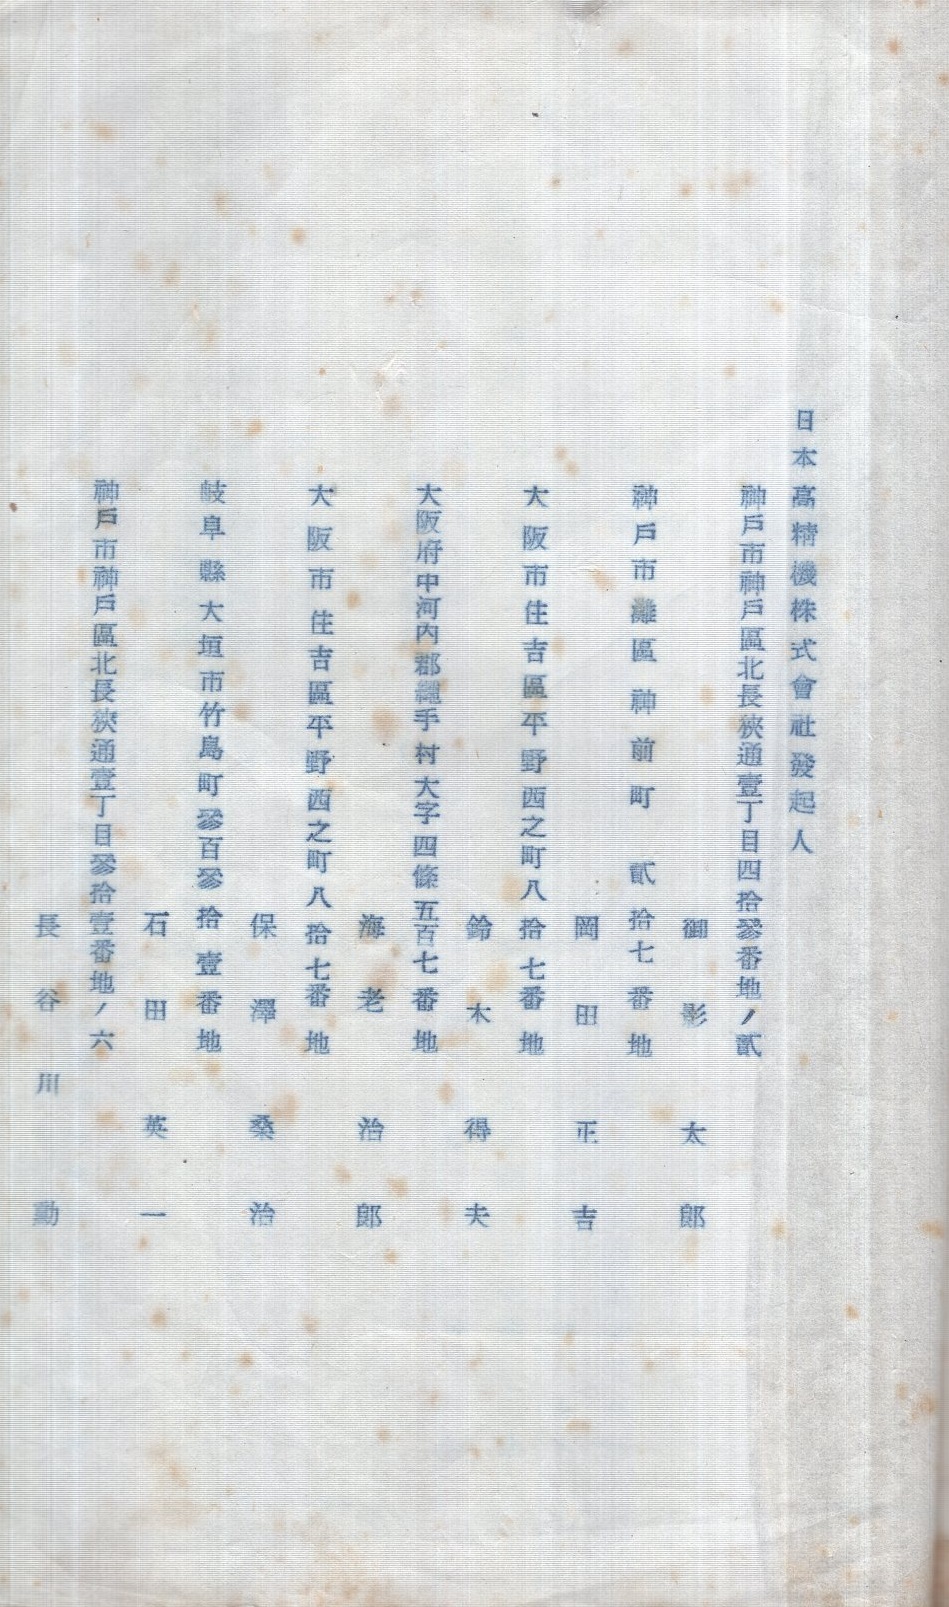 日本高精機株式會社發起人
神戶市神戶區北長狹通壹丁目四拾參番地ノ貳
御影太郎
神戶市灘區神前町貳拾七番地
岡田正吉
大阪市住吉區平野西之町八拾七番地
鈴木得夫
大阪府中河內郡繩手村大字四條五百七番地
海老治郎
大阪市住吉區平野西之町八拾七番地
保澤桑治
岐阜縣大垣市竹島町參百參拾壹番地
石田英一
神戶市神戶區北長狹通壹丁目參拾壹番地ノ六
長谷川勳